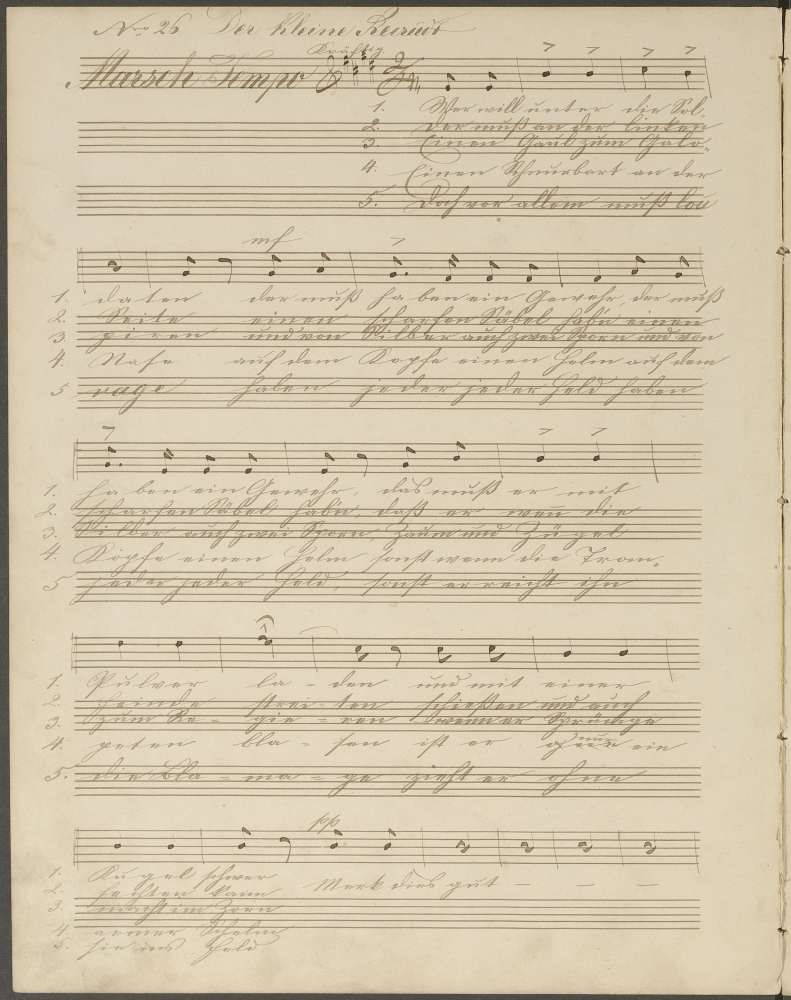 No 26 Der kleine Recrut
Kräftig
Marsch Tempo
1. Wer will unter die Sol-
2. Der muß an der linken
3. Einen Gaul zum Galo-
4. Einen Schnurbart an der
5. Doch vor allem muß Cou
mf
1. daten der muß haben ein Gewehr, der muß
2. Seite einen scharfen Säbel habn einen
3. piren und von Silber auch zwei Sporn und von
4. Nase auf dem Kopfe einen Helm auf dem
5 rage haben jeder jeder Held haben
1. haben ein Gewehr, das muß er mit
2. scharfen Säbel habn, daß er wenn die
3. Silber auch zwei Sporn, Zaum und Zügel
4. Kopfe einen Helm sonst wenn die Trom-
5 jeder jeder Held, sonst erreicht ihn
1. Pulver la - den und mit einer
2. Feinde strei - ten schießen und auch
3. zum Re - gie - ren wenn er Sprünge
4. peten bla - sen ist er nur ein
5. die Bla - ma - ge zieht er ohne
pp
1. Kugel schwer
2. fechten kann Merk dies gut - - -
3. macht im Zorn
4. armer Schelm
5. sie ins Feld